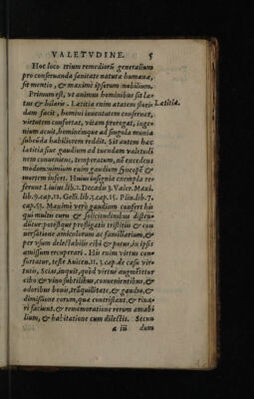 VALETVDINE. 5
Hoc loco trium remediorũ generalium
pro conseruanda sanitate naturæ humanæ,
fit mentio, & maximè ipsorum nobilium.
Primum est, vt animus hominibus sit læ-
tus & hilaris. Lætitia enim ætatem floridam Lætitia.
dam facit, homini iuuentutem conseruat,
virtutem confortat, vitam prorogat, inge-
nium acuit, hominémque ad singula munia
subeũda habiliorem reddit. Sit autem hæc
lætitia siue gaudium ad tuendam valetudi-
nem conueniens, temperatum, nõ excedens
modum: nimium enim gaudium syncopẽ &
mortem infert. Huius insignia exempla re-
ferunt Liuius lib.2. Decadis 3. Valer. Maxi.
lib.9.cap.12. Gelli.lib.3.cap.15. Plin.lib.7.
cap.53. Maximè verò gaudium confert his
qui multis curis & solicitudinibus distra-
hũtur: potéstque profligatis tristitiis & con
uersatione amicolorum ac familiarium, &
per vsum delectabilis cibi & potus, in ipsis
amissum recuperari. Hic enim virtus con-
fortatur, teste Auicen.11.3.cap.de casu vir-
tutis, Scias, inquit, quòd virtus augmẽtetur
cibo & vino subtilibus, conuenientibus, &
odoribus bonis, trãquilitate, & gaudio, &
dimissione eorum, quæ contristant, & rixa-
ri faciunt, & rememoratione rerum amabi
lium, & habitatione cum dilectis. Secun
a iii dum